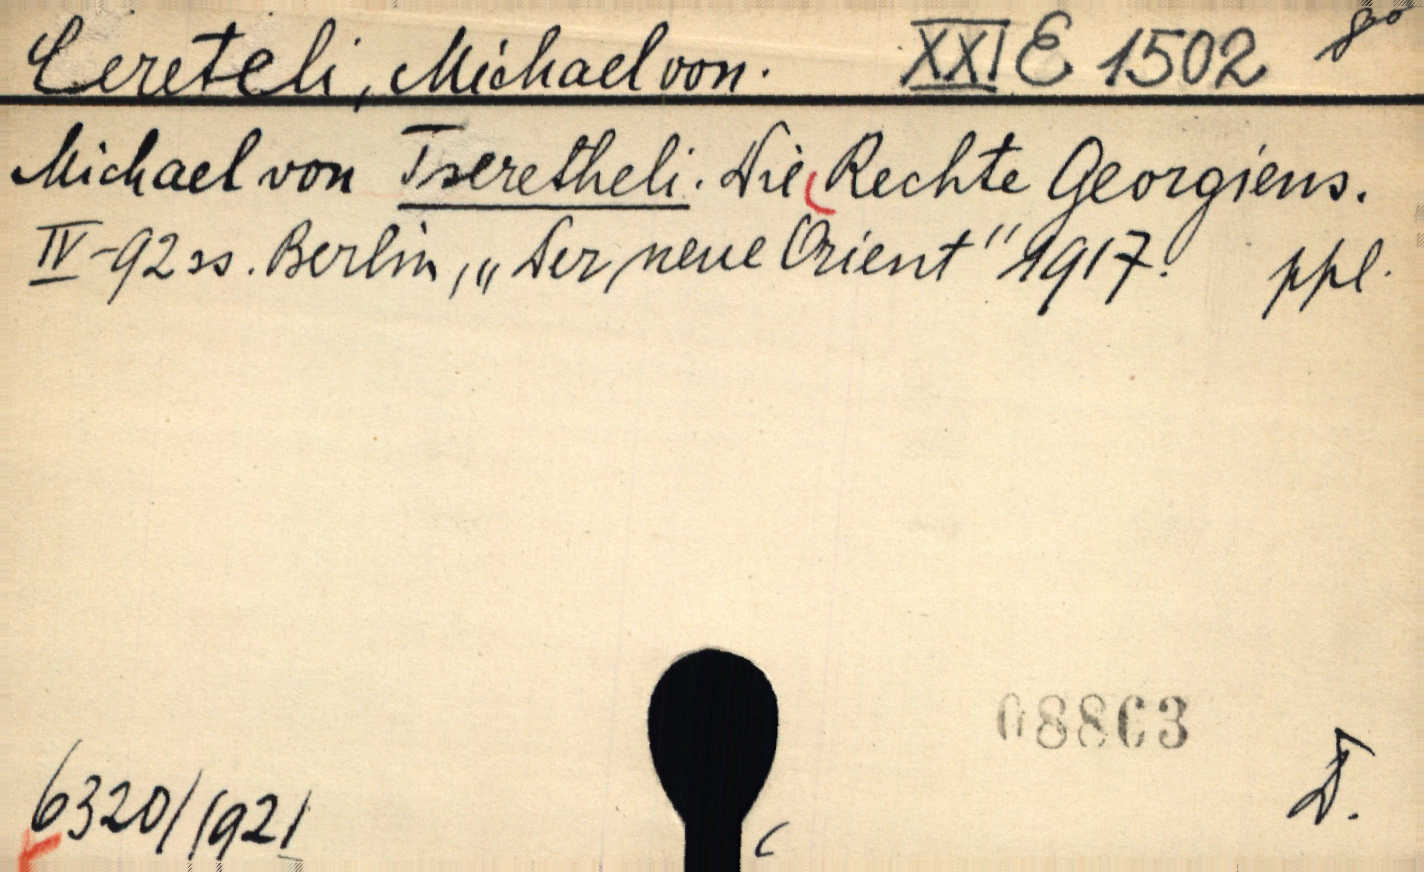 Cereteli, Michael von. XXI E 1502 8°
Michael von Tseretheli. Die Rechte Georgiens.
IV-92 ss. Berlin, „Der neue Orient" 1917. ppl.
08863
6320/1921
D.